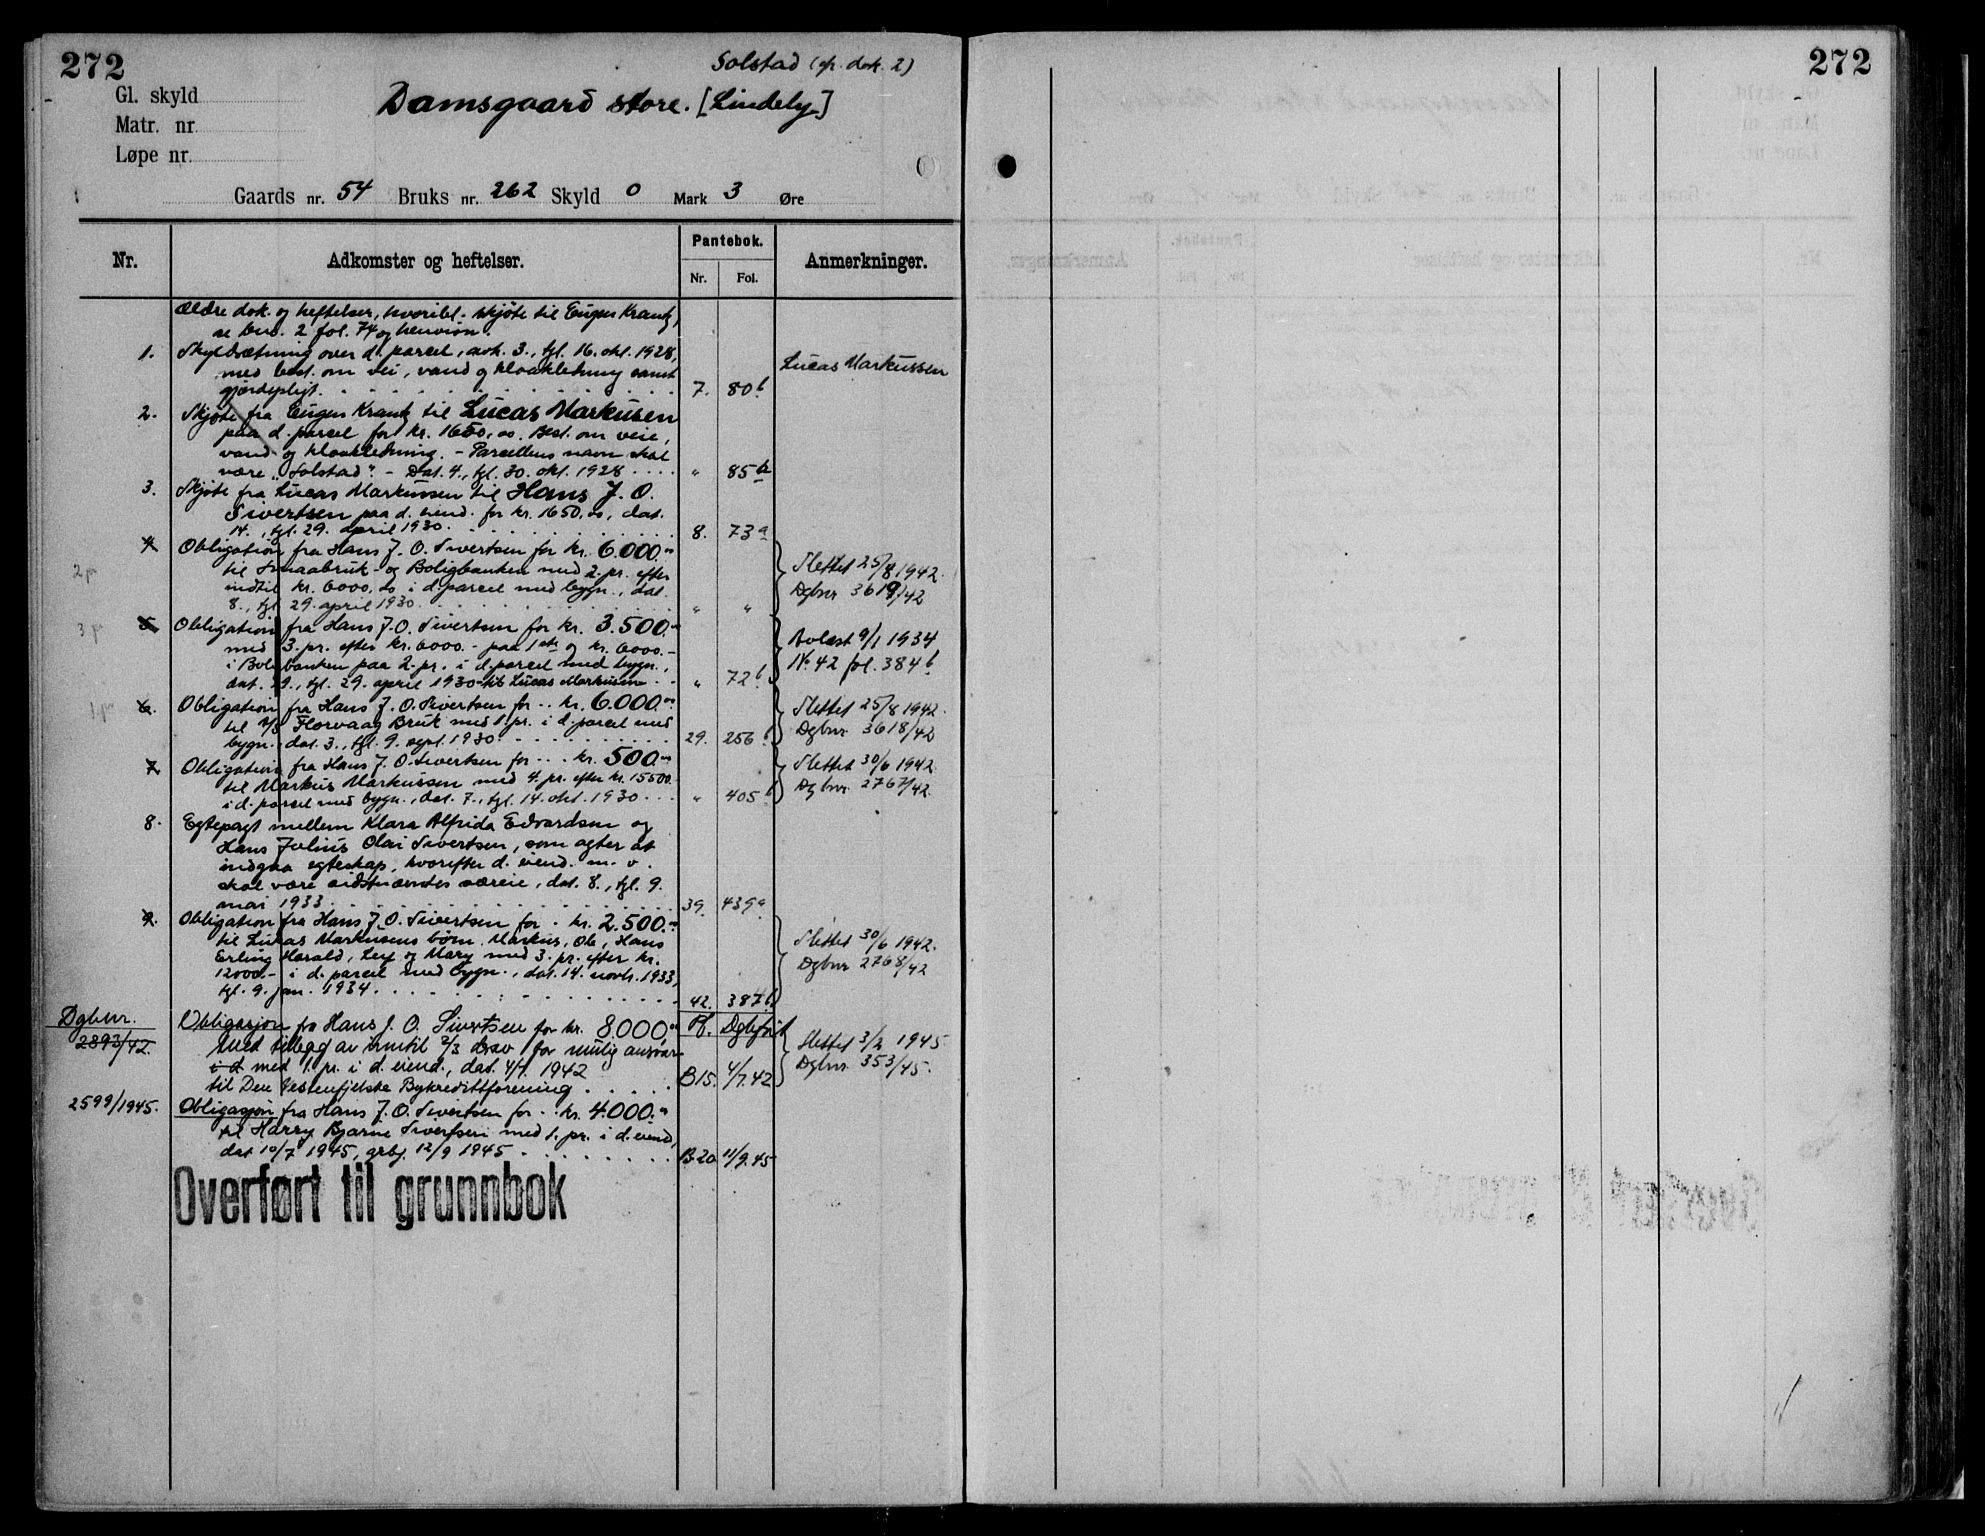 272
Solstad (cfr. dok. 2)
Gl. skyld
Damsgaard store. [Lindely]
Matr. nr.
Løpe nr.
Gaards nr. 54 Bruks nr. 262 Skyld 0 Mark 3 Øre
Nr. Adkomster og heftelser. Pantebok. Nr. Fol. Anmerkninger.
Ældre dok. og heftelser, hvoribl. skjøte til Eugen Krantz,
se bnr. 2 fol. 74 og henvisn.
1. Skyldsætning over d. parcel, avh. 3., tgl. 16. okt. 1928,
med best. om vei, vand og kloakledning samt
gjerdepligt. 7. 80b
Lucas Markussen
2. Skjøte fra Eugen Krantz til Lucas Markusen
paa d. parcel for kr. 1650,00. Best. om veie,
vand- og kloakledning. - Parcellens navn skal
være "Solstad". - Dat. 4., tgl. 30. okt. 1928 " 85b
3. Skjøte fra Lucas Markussen til Hans J. O.
Sivertsen paa d. eiend. for kr. 1650,00, dat.
14., tgl. 29. april 1930. 8. 73a
4. Obligation fra Hans J. O. Sivertsen for kr. 6.000.00
2 pr. til Smaabruk- og Boligbanken med 2. pr. efter
indtil kr. 6000,00 i d. parcel med bygn., dat.
8., tgl. 29. april 1930. " "
Slettet 25/8 1942.
Dgbnr 3619/42
3 pr 5. Obligation fra Hans J. O. Sivertsen for kr. 3.500.00
med 3. pr. efter kr. 6000.- paa 1ste og kr. 6000.-
i Boligbanken paa 2. pr. i d. parcel med bygn.,
dat. 29., tgl. 29. april 1930 til Lucas Markusen " 72b
Avlæst 9/1 1934
No 42 fol. 384b
1 pr 6. Obligation fra Hans J. O. Sivertsen for kr. 6.000.00
til A/S Florvaag Bruk med 1. pr. i d. parcel med
bygn., dat. 3., tgl. 9. sept. 1930. 29. 256b
Slettet 25/8 1942.
Dgbnr 3618/42
7. Obligation fra Hans J. O. Sivertsen for kr. 500.00
til Markus Markussen med 4. pr. efter kr. 15500.-
i d. parcel med bygn., dat. 7., tgl. 14. okt. 1930 " 405b
Slettet 30/6 1942.
Dgbnr. 2767/42.
8. Egtepagt mellem Klara Alfrida Edvardsen og
Hans Julius Olai Sivertsen, som agter at
indgaa egteskap, hvorefter d. eiend. m. v.
skal være sidstnævntes særeie, dat. 8., tgl. 9.
mai 1933. 39. 439a
9. Obligation fra Hans J. O. Sivertsen for kr. 2.500.00
til Lukas Markusens børn, Markus, Ole, Hans
Erling Harald, Leif og Mary med 3. pr. efter kr.
12000.- i d. parcel med bygn., dat. 14. novbr. 1933,
tgl. 9. jan. 1934. 42. 387b
Slettet 30/6 1942.
Dgbnr 2768/42
Dgbnr.
2893/42. Obligasjon fra Hans J. O. Sivertsen for kr. 8.000,00 Pb. Dgbført
Med tillegg av inntil 2/3 derav for mulig ansvar
i d med 1. pr. i d. eiend., dat. 4/7. 1942
til Den Vestenfjelske Bykredittforening B15. 4/7.42
Slettet 3/2 1945
Dgbnr 353/45.
2599/1945. Obligasjon fra Hans J. O. Sivertsen for kr. 4.000.00
til Harry Bjarne Sivertsen med 1. pr. i d. eiend,
dat 10/7 1945, grbf. 12/9 1945 B.20 11/9.45
Overført til grunnbok
272